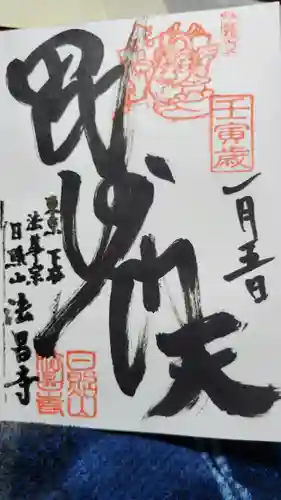 壬寅歳
一月五日
毘沙門天
東京 下谷
法華宗
日照山 法昌寺
日照山